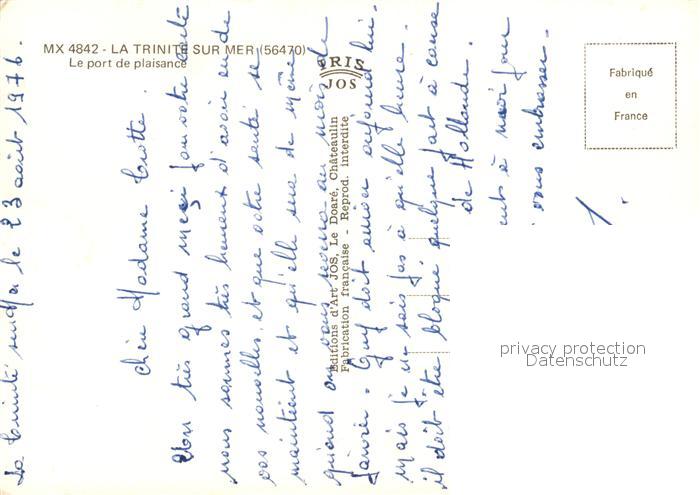 MX 4842 - LA TRINITÉ SUR MER (56470)
Le port de plaisance
IRIS
JOS
Fabriqué
en
France
Editions d'Art JOS, Le Doaré, Châteaulin
Fabrication française - Reprod. interdite
La Trinité sur Mer le 23 août 1976.
Chère Madame
Un très grand merci pour votre carte
nous sommes très heureux d'avoir eu de
vos nouvelles, et que votre santé se
maintient et qu'elle sera de même
quand on vous reverra au mois de
Janvier. Guy doit arriver aujourd'hui
mais je ne sais pas à qu'elle heure.
il doit être bloqué quelque part à cause
de Hollande.
vous embrasser.
privacy protection
Datenschutz